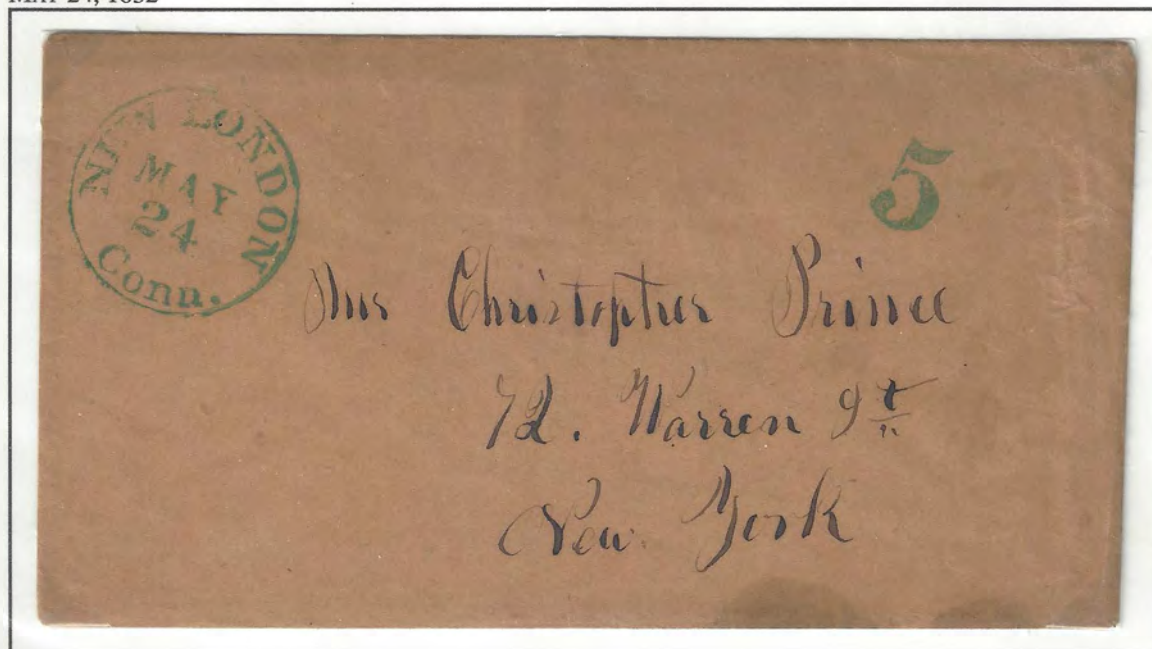 MAY 24, 1852
NEW LONDON
MAY
24
Conn.
5
Mrs Christopher Prince
72. Warren St
New York